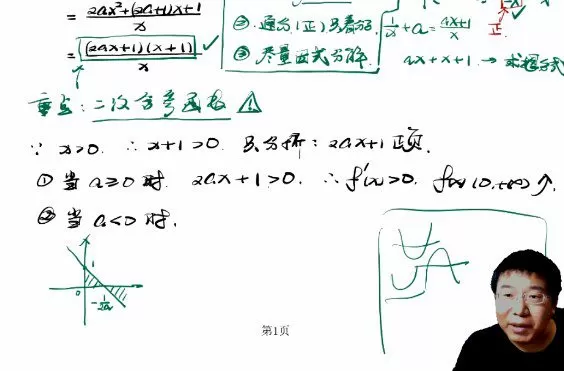 = 2ax²+(2a+1)x+1 / x
= (2ax+1)(x+1) / x ✓
② 通分(正)只看分子. 1/x + a = ax+1/x 正.
③ 尽量因式分解. ax+x+1. → 求根公式
重点: 二次含参函数 ⚠
∵ x>0. ∴ x+1>0. 只分析: 2ax+1 正负.
① 当 a≥0 时. 2ax+1>0. ∴ f'(x)>0. f(x) (0,+∞)↑.
② 当 a<0 时.
x
1
0
-1/2a
第1页